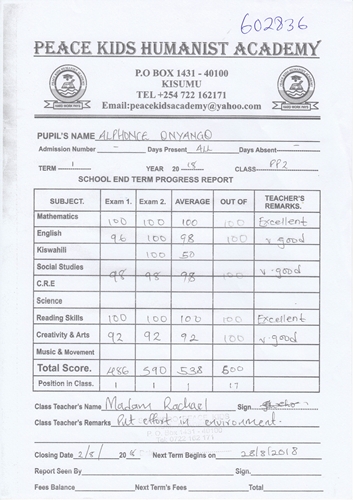 602836
PEACE KIDS HUMANIST ACADEMY
P.O BOX 1431 - 40100
KISUMU
TEL +254 722 162171
Email:peacekidsacademy@yahoo.com
PUPIL'S NAME ALPHONCE ONYANGO
Admission Number - Days Present ALL Days Absent -
TERM 1 YEAR 2018 CLASS PP2
SCHOOL END TERM PROGRESS REPORT
SUBJECT. Exam 1. Exam 2. AVERAGE OUT OF TEACHER'S REMARKS.
Mathematics 100 100 100 100 Excellent
English 96 100 98 100 v.good
Kiswahili 100 50
Social Studies 98 98 98 100 v.good
C.R.E
Science
Reading Skills 100 100 100 100 Excellent
Creativity & Arts 92 92 92 100 v.good
Music & Movement
Total Score. 486 590 538 600
Position in Class. 1 1 1 17
Class Teacher's Name Madam Rachael Sign.
Class Teacher's Remarks Put effort in environment.
Closing Date 2/8/ 2018 Next Term Begins on 28/8/2018
Report Seen By Sign.
Fees Balance Next Term's Fees Total